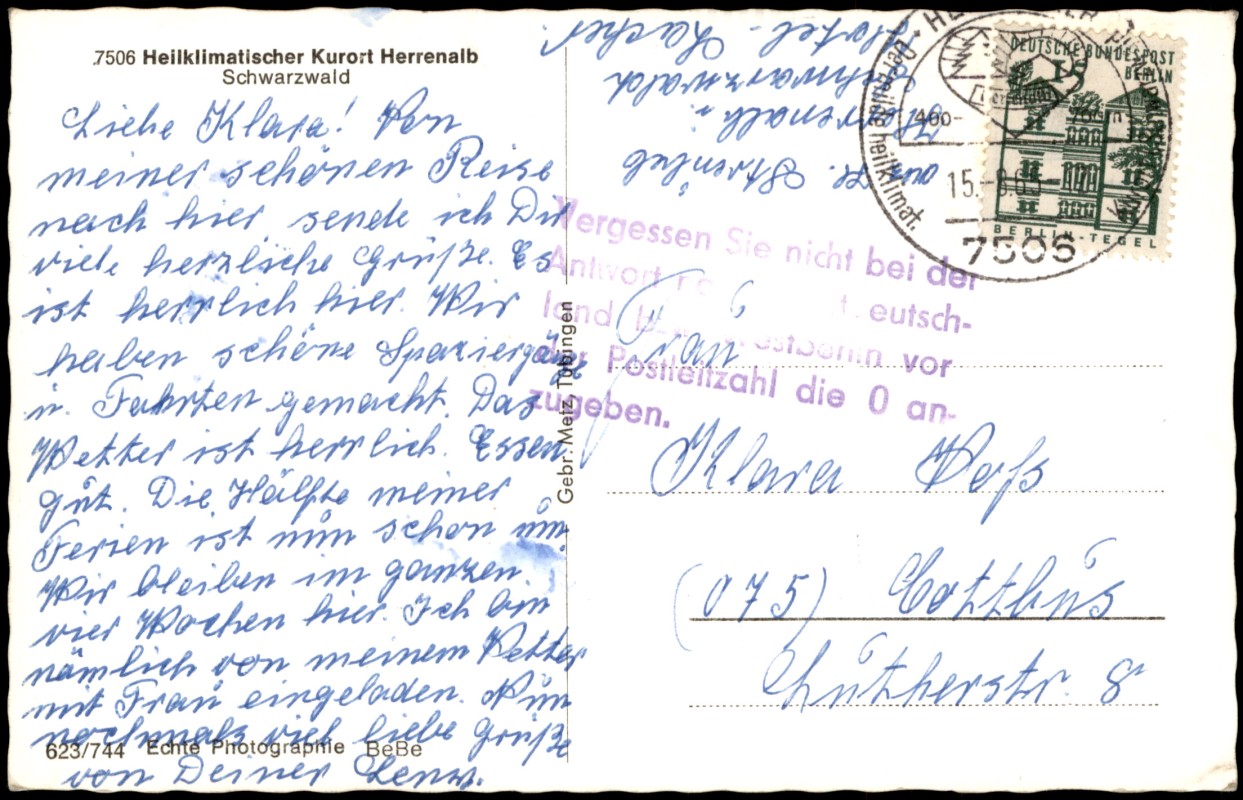 7506 Heilklimatischer Kurort Herrenalb
Schwarzwald
Liebe Klara! Von
meiner schönen Reise
nach hier, sende ich Dir
viele herzliche Grüße. Es
ist herrlich hier. Wir
haben schöne Spaziergänge
u. Fahrten gemacht. Das
Wetter ist herrlich. Essen
gut. Die Hälfte meiner
Ferien ist nun schon um.
Wir bleiben im ganzen
vier Wochen hier. Ich bin
nämlich von meinem Vetter
mit Frau eingeladen. Nun
nochmals viel liebe Grüße
von Deiner
623/744 Echte Photographie BeBe
Gebr. Metz, Tübingen
Herrenalb
Schwarzwald
Hotel-
DEUTSCHE BUNDESPOST
BERLIN
15
BERLIN-TEGEL
heilklimat.
7506
Vergessen Sie nicht bei der
Antwort
land vor
der Postleitzahl die 0 an-
zugeben.
Frau
Klara Voß
(075) Cottbus
Lutherstr. 8